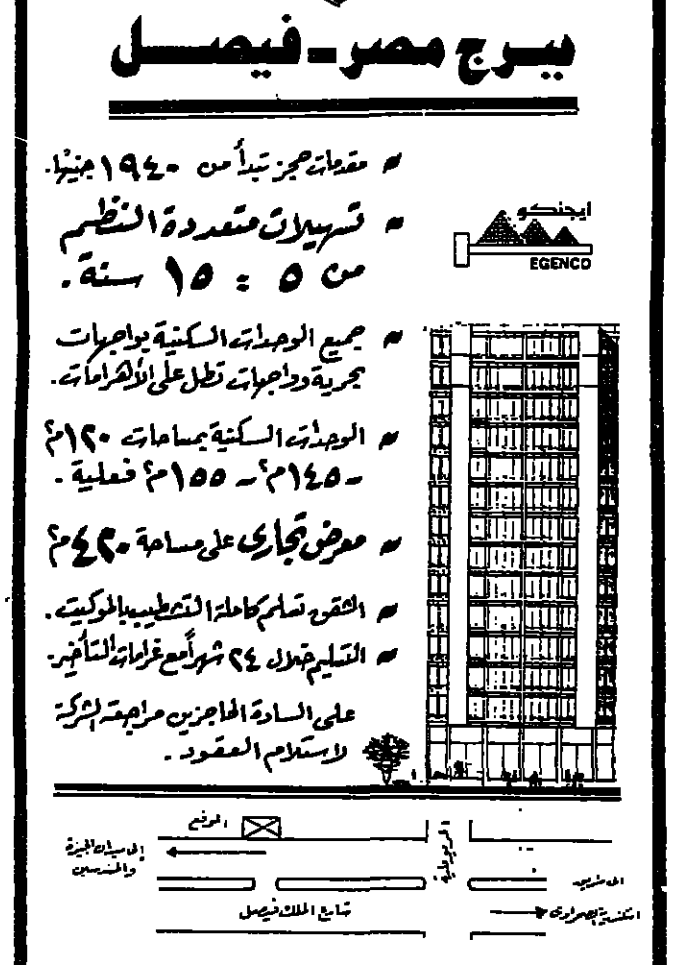 بيرج مصر - فيصل
مقدمات حجز تبدأ من ١٩٤٠ جنيهًا.
تسهيلات متعددة النظم
من ٥ : ١٥ سنة.
ايجنكو
EGENCO
جميع الوحدات السكنية بواجهات
بحرية وواجهات تطل على الأهرامات.
الوحدات السكنية بمساحات ١٢٠م٢
- ١٤٥م٢ - ١٥٥م٢ فعلية.
معرض تجارى على مساحة ٤٢٠م٢
الشقق تسلم كاملة التشطيب بالموكيت.
التسليم خلال ٢٤ شهراً مع غرامات التأخير.
على السادة الحاجزين مراجعة الشركة
لاستلام العقود.
الموقع
المريوطية
إلى ميدان الجيزة
والمهندسين
شارع الملك فيصل
اسكندرية الصحراوى